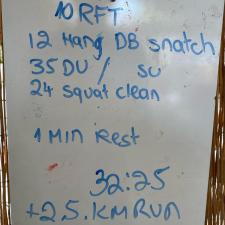 10 RFT
12 Hang DB snatch
35 DU / SU
24 squat clean
1 Min Rest
32:25
+ 2.5.KM RUN